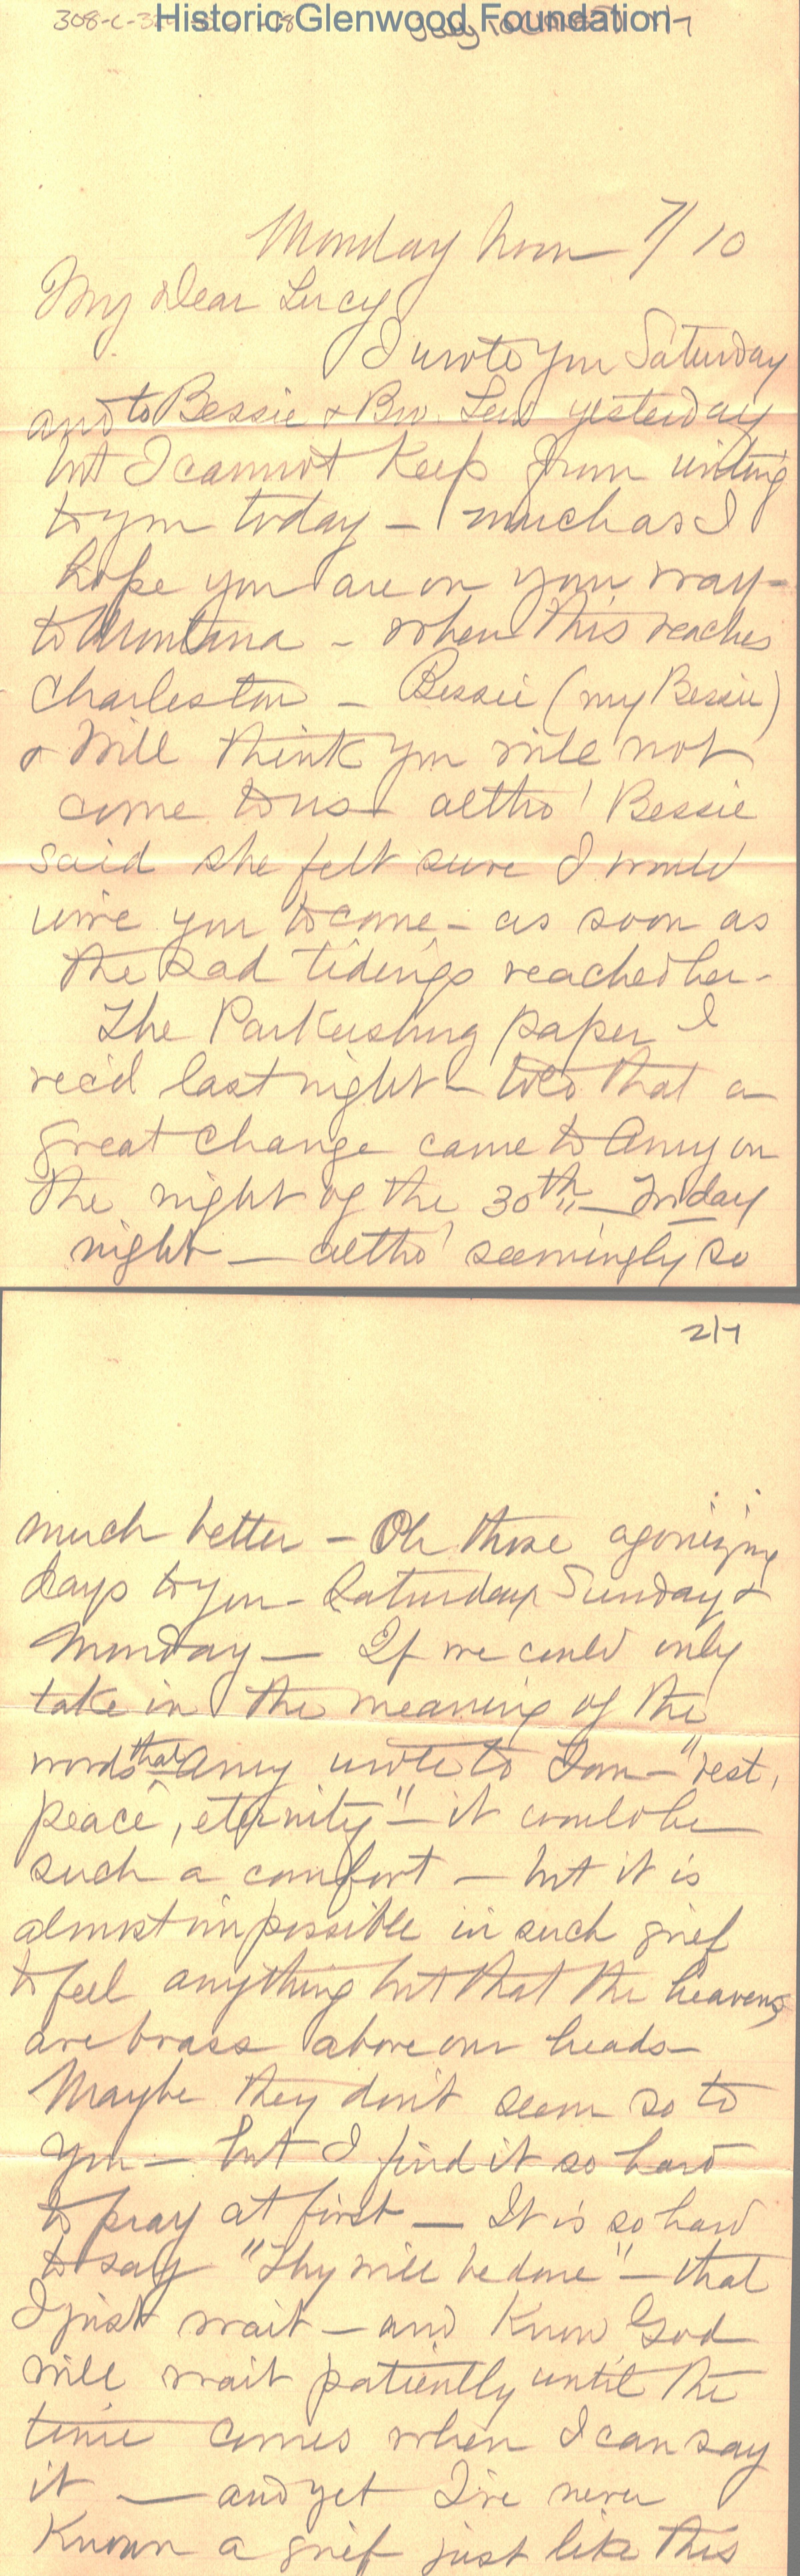 Historic Glenwood Foundation
308-C-
Monday noon 7/10
My Dear Lucy
I wrote you Saturday
and to Bessie & Bro. yesterday
but I cannot keep from writing
to you today - much as I
hope you are on your way -
to Montana - when this reaches
Charleston - Bessie (my Bessie)
& Will think you will not
come to us - altho' Bessie
said she felt sure I would
wire you to come - as soon as
the sad tidings reached her -
The Parkersburg paper I
rec'd last night - told that a
great change came to Amy on
the night of the 30th - Friday
night - altho' seemingly so
2/7
much better - Oh those agonizing
days to you - Saturday Sunday &
Monday - If we could only
take in the meaning of the
words that Amy wrote to - "rest,
peace, eternity" - it would be
such a comfort - but it is
almost impossible in such grief
to feel anything but that the heavens
are brass above our heads -
Maybe they don't seem so to
you - but I find it so hard
to pray at first - It is so hard
to say "Thy will be done" - that
I just wait - and know God
will wait patiently until the
time comes when I can say
it - and yet I've never
known a grief just like this